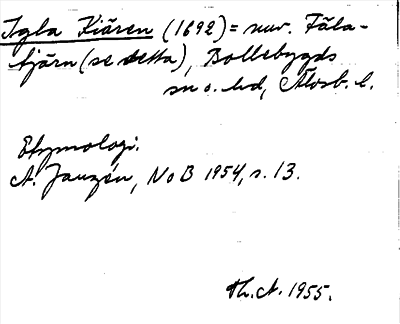 Igla Kiären (1692) = nuv. Fäla-
tjärn (se detta), Bollebygds
sn o. hd, Älvsb. l.
Etymologi.
A. Janzén, NoB 1954, s. 13.
Th. A. 1955.